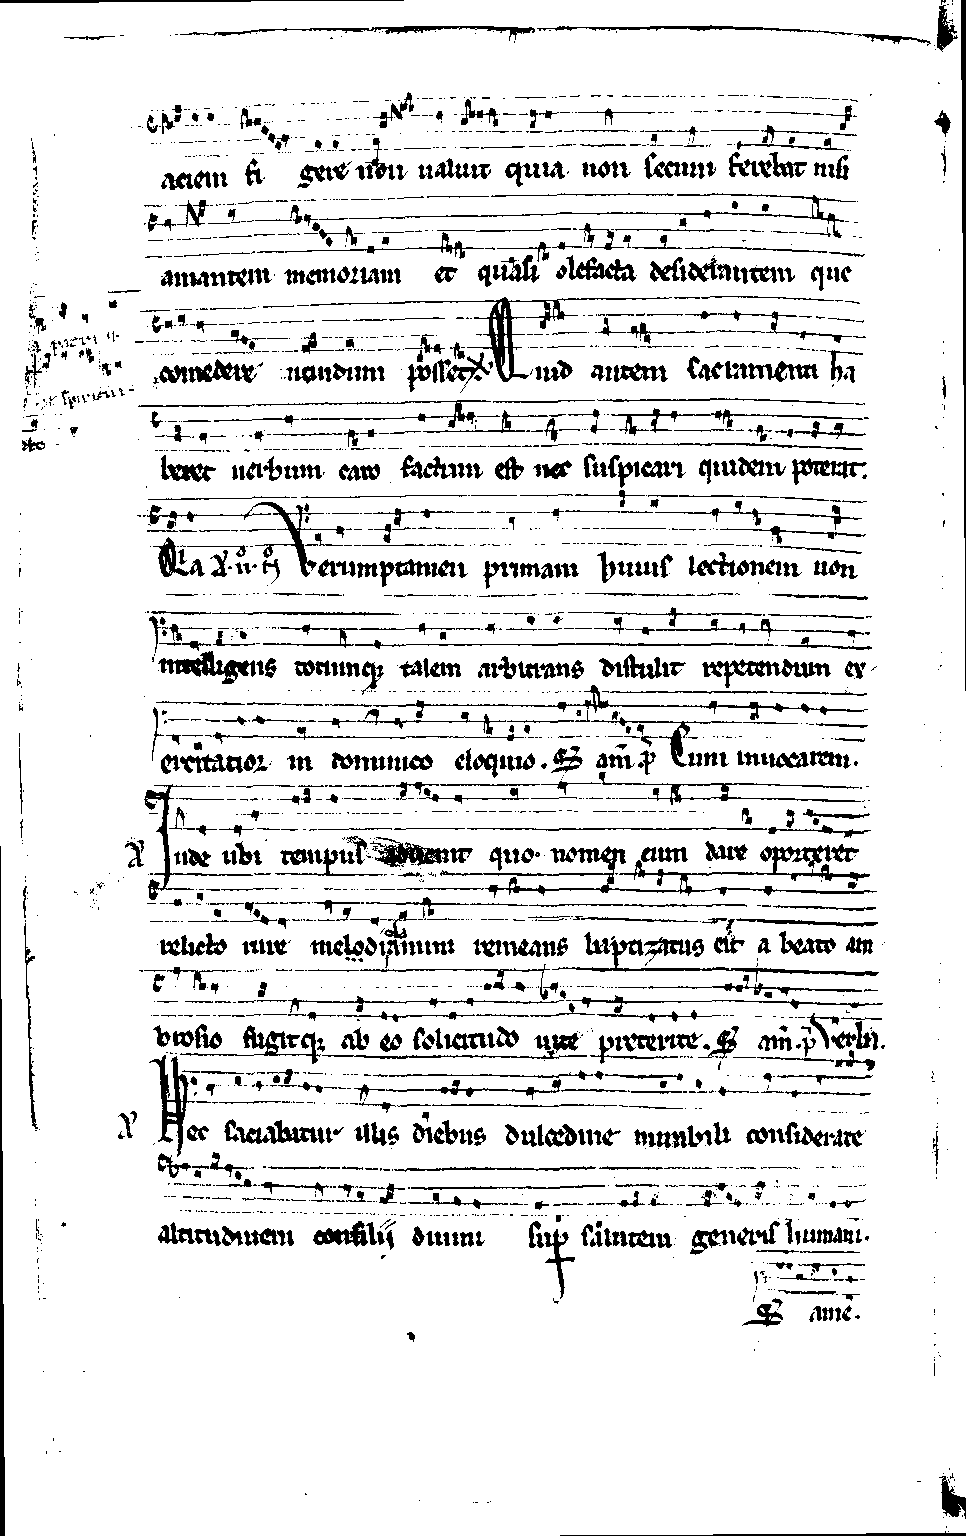 aciem fi gere non ualuit quia non secum ferebat nisi
amantem memoriam et quasi olefacta desiderantem que
comedere nundum posset. Quid autem sacramenti ha
beret uerbum caro factum est nec suspicari quidem poterat.
Verumptamen primam huius lectionem non
intelligens totumque talem arbitrans distulit repetendum ex
ercitatior in dominico eloquio. S am p Cum inuocarem.
Inde ubi tempus aduenit quo nomen eum dare oporteret
relicto rure mediolanium remeans baptizatus est a beato am
brosio fugitque ab eo solicitudo uite preterite. S am. p Verba.
Nec saciabatur illis diebus dulcedine mirabili considerare
altitudinem consilij diuini sup salutem generis humani.
S ame.